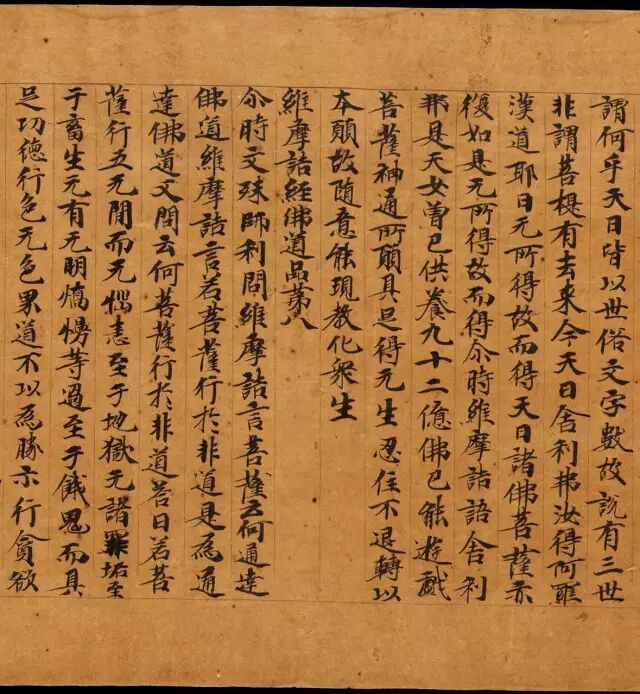 謂何乎天曰皆以世俗文字數故說有三世
非謂菩提有去來今天曰舍利弗汝得阿羅
漢道耶曰无所得故而得天曰諸佛菩薩亦
復如是无所得故而得尒時維摩詰語舍利
弗是天女曾已供養九十二億佛已能遊戲
菩薩神通所願具足得无生忍住不退轉以
本願故隨意能現教化衆生
維摩詰經佛道品第八
尒時文殊師利問維摩詰言菩薩云何通達
佛道維摩詰言若菩薩行於非道是為通
達佛道又問云何菩薩行於非道荅曰若菩
薩行五无閒而无惱恚至于地獄无諸罪垢至
于畜生无有无明憍慢等過至于餓鬼而具
足功德行色无色界道不以為勝示行貪欲